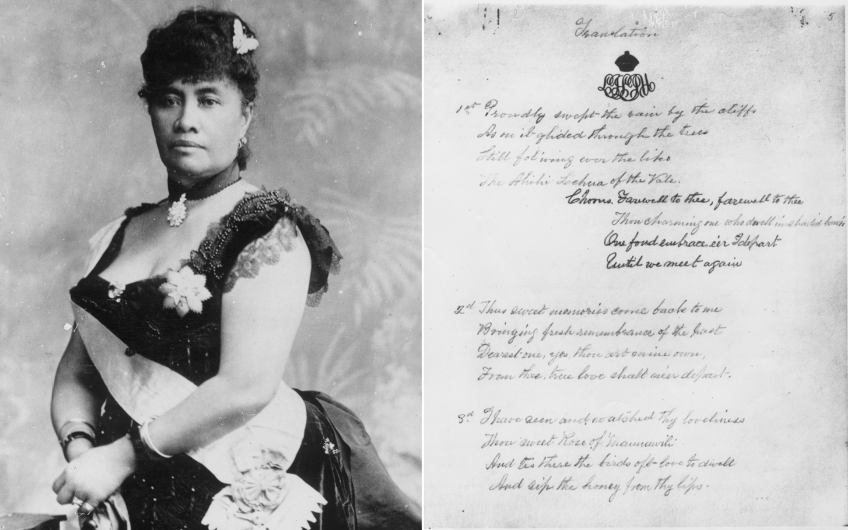 Translation
5
1st Proudly swept the rain by the cliffs
As on it glided through the trees
Still following ever the liko
The Ahihi Lehua of the Vale.
Chorus. Farewell to thee, farewell to thee
Thou charming one who dwell in shaded bow'rs
One fond embrace e'er I depart
Until we meet again
2d Thus sweet memories come back to me
Bringing fresh remembrance of the past
Dearest one, yes, thou art mine own,
From thee, true love shall ne'er depart.
3d. I have seen and watched thy loveliness
Thou sweet Rose of Maunawili
And tis there the birds oft love to dwell
And sip the honey from thy lips.